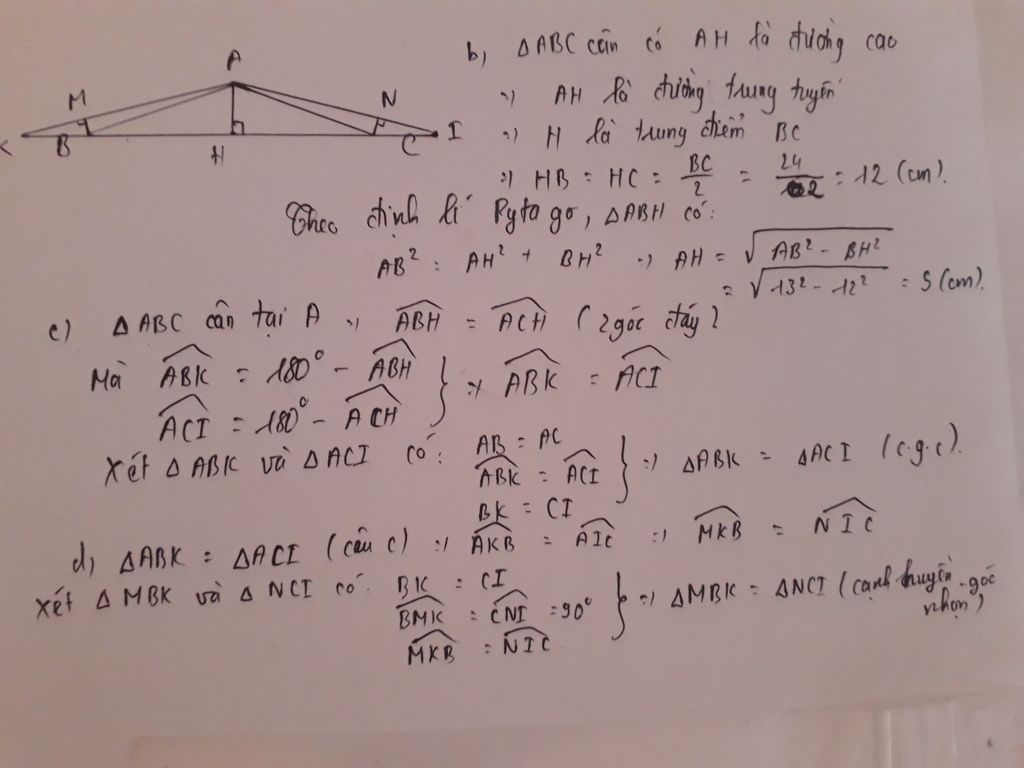 A
M
N
K
B
H
C
I
b) ΔABC cân có AH là đường cao
=) AH là đường trung tuyến
=) H là trung điểm BC
=) HB = HC = BC/2 = 24/2 = 12 (cm).
Theo định lí Pytago, ΔABH có:
AB² = AH² + BH² =) AH = √(AB² - BH²)
= √(13² - 12²) = 5 (cm).
c) ΔABC cân tại A =) \widehat{ABH} = \widehat{ACH} (2 góc đáy)
Mà \widehat{ABK} = 180° - \widehat{ABH} } =) \widehat{ABK} = \widehat{ACI}
\widehat{ACI} = 180° - \widehat{ACH}
Xét ΔABK và ΔACI có: AB = AC
\widehat{ABK} = \widehat{ACI} } =) ΔABK = ΔACI (c.g.c).
BK = CI
d) ΔABK = ΔACI (câu c) =) \widehat{AKB} = \widehat{AIC} =) \widehat{MKB} = \widehat{NIC}
Xét ΔMBK và ΔNCI có: BK = CI
\widehat{BMK} = \widehat{CNI} = 90° } =) ΔMBK = ΔNCI (cạnh huyền - góc nhọn)
\widehat{MKB} = \widehat{NIC}